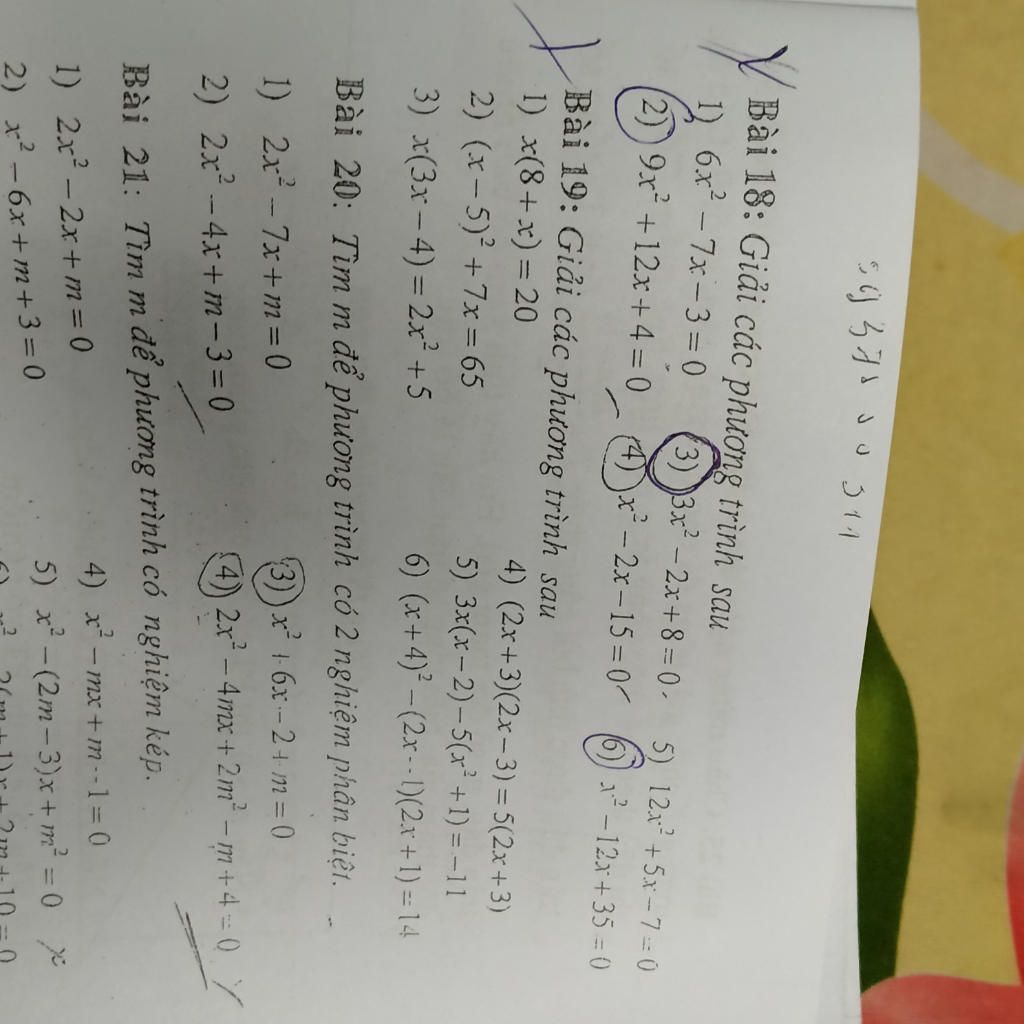 Bài 18: Giải các phương trình sau
1) 6x² − 7x − 3 = 0 3) 3x² − 2x + 8 = 0 5) 12x² + 5x − 7 = 0
2) 9x² + 12x + 4 = 0 4) x² − 2x − 15 = 0 6) x² − 12x + 35 = 0
Bài 19: Giải các phương trình sau
1) x(8 + x) = 20 4) (2x + 3)(2x − 3) = 5(2x + 3)
2) (x − 5)² + 7x = 65 5) 3x(x − 2) − 5(x² + 1) = −11
3) x(3x − 4) = 2x² + 5 6) (x + 4)² − (2x − 1)(2x + 1) = 14
Bài 20: Tìm m để phương trình có 2 nghiệm phân biệt.
1) 2x² − 7x + m = 0 3) x² + 6x − 2 + m = 0
2) 2x² − 4x + m − 3 = 0 4) 2x² − 4mx + 2m² − m + 4 = 0
Bài 21: Tìm m để phương trình có nghiệm kép.
1) 2x² − 2x + m = 0 4) x² − mx + m − 1 = 0
2) x² − 6x + m + 3 = 0 5) x² − (2m − 3)x + m² = 0